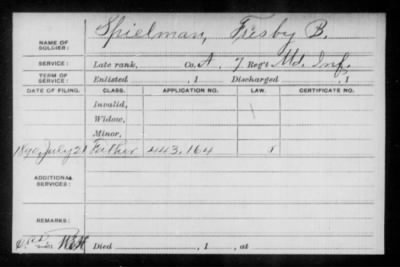 NAME OF SOLDIER: Spielman, Fresby B.
SERVICE: Late rank, Co. A, 7 Reg't Md. Inf.
TERM OF SERVICE: Enlisted , 1 Discharged , 1
DATE OF FILING. CLASS. APPLICATION NO. LAW. CERTIFICATE NO.
Invalid,
Widow,
Minor,
1890, July 21 Father 443.164
ADDITIONAL SERVICES:
REMARKS:
Died , 1 , at